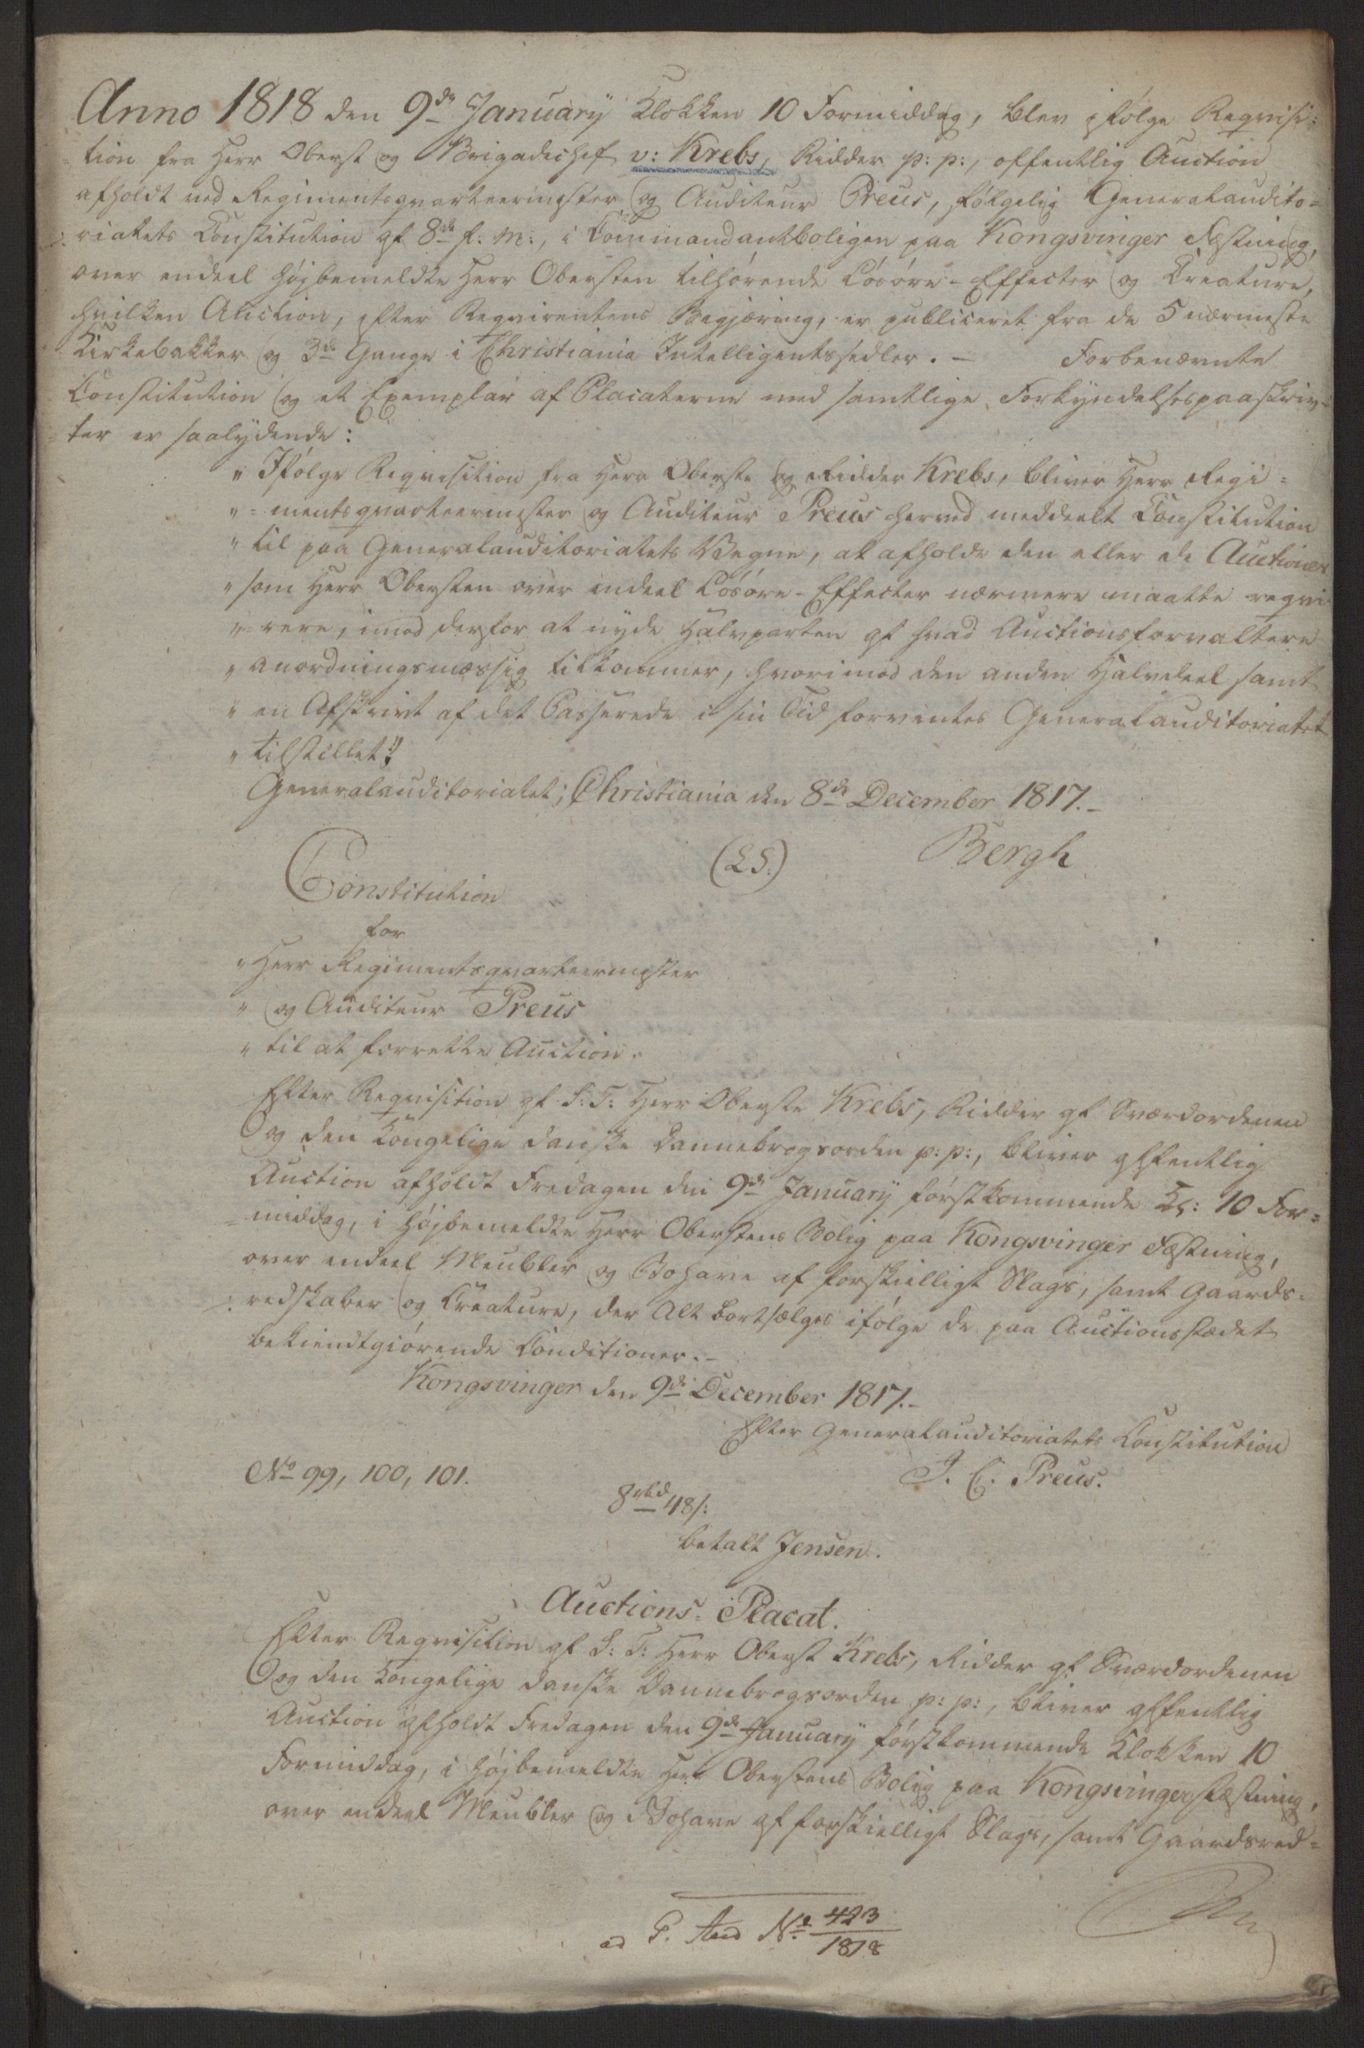 Anno 1818 den 9de January Klokken 10 Formiddag, blev ifølge Reqvisi-
tion fra Herr Oberst og Brigadechef v: Krebs, Ridder p: p:, offentlig Auction
afholdt ved Regimentsqvarteermester og Auditeur Preus, følgelig Generalaudito-
riatets Constitution af 8de f. M:, i Commandantboligen paa Kongsvinger Fæstning,
over endeel højbemeldte Herr Obersten tilhørende Løsøre-Effecter og Creature,
hvilken Auction, efter Reqvirentens Begjæring, er publiceret fra de 5 nærmeste
Kirkebakker og 3de Gange i Christiania Intelligentssedler. — Forbenævnte
Constitution og et Exemplar af Placaterne med samtlige Forkyndelsespaaskriv-
ter er saalydende:
" Ifølge Reqvisition fra Herr Oberste og Ridder Krebs, bliver Herr Regi-
" mentsqvarteermester og Auditeur Preus herved meddeelt Constitution
" til paa Generalauditoriatets Vegne, at afholde den eller de Auctioner
" som Herr Obersten over endeel Løsøre-Effecter nærmere maatte reqvi-
" rere, imod derfor at nyde Halvparten af hvad Auctionsforvaltere
" anordningsmæssig tilkommer, hvorimod den anden Halvdeel samt
" en Afskrivt af det Passerede i sin Tid forventes Generalauditoriatet
" tilstillet."
Generalauditoriatet; Christiania den 8de December 1817.–
(L.S.) Bergh
Constitution
for
" Herr Regimentsqvarteermester
" og Auditeur Preus
" til at forrette Auction.
Efter Reqvisition af S: T: Herr Oberste Krebs, Ridder af Sværdordenen
og den Kongelige danske Dannebrogsorden p: p:, bliver offentlig
Auction afholdt Fredagen den 9de January førstkommende Kl: 10 For-
middag, i højbemeldte Herr Oberstens Bolig paa Kongsvinger Fæstning,
over endeel Meubler og Bohave af forskielligt Slags, samt Gaards-
redskaber og Creature, der Alt bortsælges ifølge de paa Auctionsstædet
bekiendtgiørende Conditioner.–
Kongsvinger den 9de December 1817.–
Efter Generalauditoriatets Constitution
J. C. Preus.
No 99, 100, 101.
8rbd 48/:
betalt Jensen.
Auctions-Placat.
Efter Reqvisition af S: T: Herr Oberst Krebs, Ridder af Sværdordenen
og den Kongelige danske Dannebrogsorden p: p:, bliver offentlig
Auction afholdt Fredagen den 9de January førstkommende Klokken 10
Formiddag, i højbemeldte Herr Oberstens Bolig paa Kongsvinger Fæstning,
over endeel Meubler og Bohave af forskielligt Slags, samt Gaardsred-
ad P. And No 423/1818